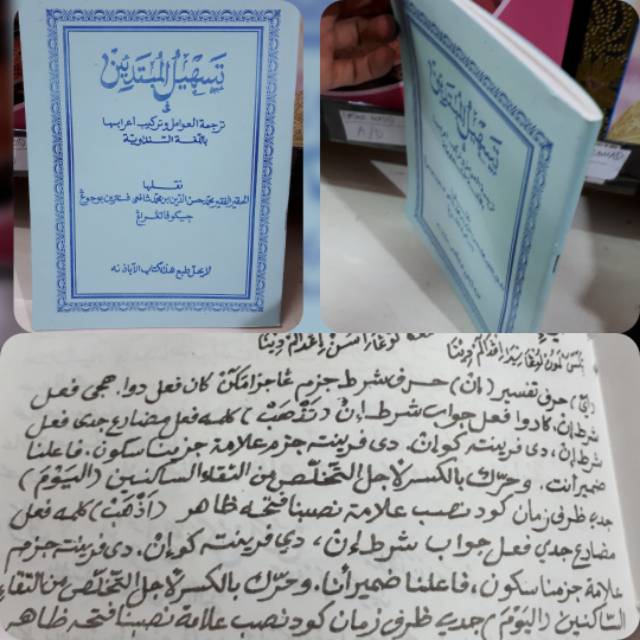 تسهيل المبتدئين
في
ترجمة العوامل وتركيب اعرابها
باللغة السنداوية
نقلها
الحقير الفقير محمد حسن الدين بن محمد شافعي فسنترين بوجوڠ
چيكوفا كفرڠ
لا يجوز طبع هذا الكتاب الا باذنه
حرف تفسير (ان) حرف شرط جزم عاجزمكن كان فعل دوا. هجي فعل
شرط إن، كادوا فعل جواب شرط إن (تذهب) كلمه فعل مضارع جدي فعل
شرط إن، دي فرينته كو ان. دي فرينته جزم علامة جزمنا سكون. فاعلنا
ضمير انت. وحرك بالكسر لاجل التخلص من التقاء الساكنين (اليوم)
جدي ظرف زمان كود نصب علامة نصبنا فتحه ظاهر (اذهب) كلمه فعل
مضارع جدي فعل جواب شرط إن، دي فرينته كو إن. دي فرينته جزم
علامة جزمنا سكون، فاعلنا ضمير انا. وحرك بالكسر لاجل التخلص من التقاء
الساكنين (اليوم) جدي ظرف زمان كود نصب علامة نصبنا فتحه ظاهر